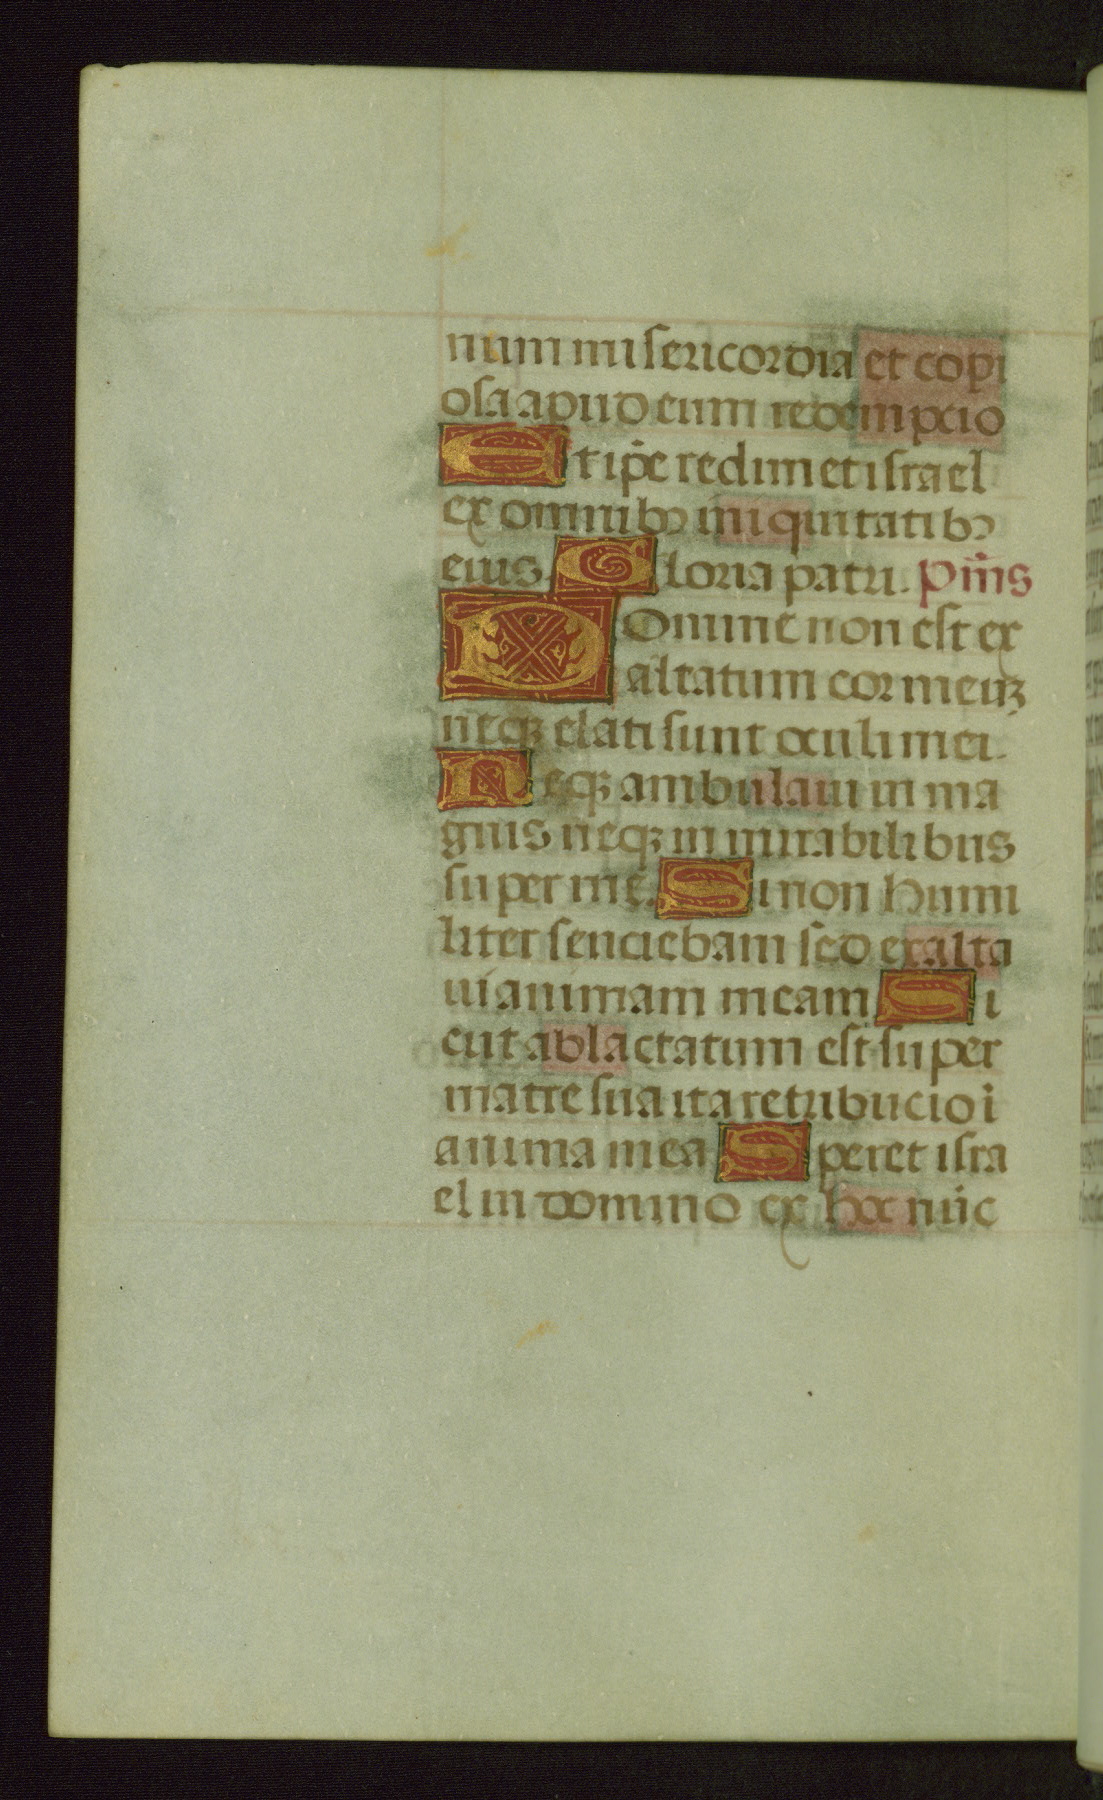 num misericordia et copi
osa apud eum redempcio
Et ip̄e redimet israel
ex omnibꝰ iniquitatibꝰ
eius. Gloria patri. p̄mus
Domine non est ex
altatum cor meuꝫ
neqꝫ elati sunt oculi mei.
Neqꝫ ambulaui in ma
gnis neqꝫ in mirabilibus
super me. Si non humi
liter senciebam sed exalta
ui animam meam Si
cut ablactatum est super
matre sua ita retribucio ī
anima mea Speret isra
el in domino ex hoc nūc